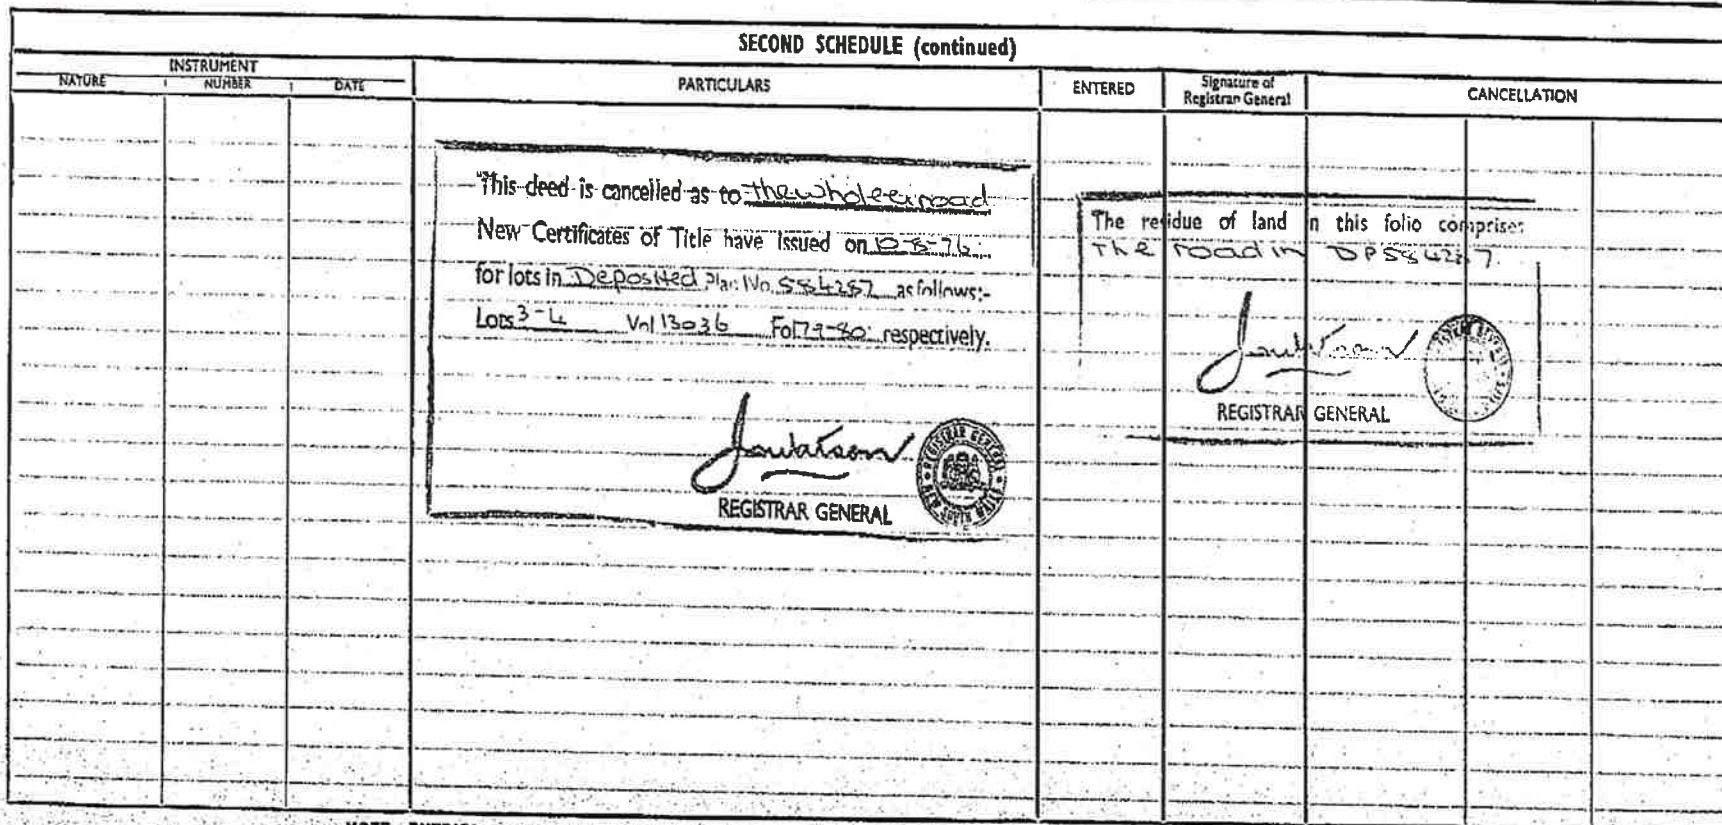 SECOND SCHEDULE (continued)
INSTRUMENT
NATURE NUMBER DATE
PARTICULARS
ENTERED
Signature of
Registrar General
CANCELLATION
This deed is cancelled as to the whole ex road
New Certificates of Title have issued on 10-8-76
for lots in Deposited Plan No. 584287 as follows:-
Lots 3-4 Vol 13036 Fol 79-80 respectively.
Jawatson
REGISTRAR GENERAL
REGISTRAR GENERAL
NEW SOUTH WALES
The residue of land in this folio comprises
The road in DP584287.
Jawatson
REGISTRAR GENERAL